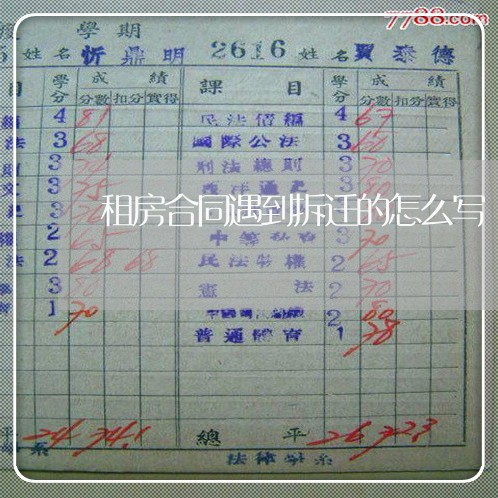 7788.com
學期
姓名 忻鼎明 2616 姓名 賈泰德
目 學分 成績 課目 學分 成績
分數 扣分 實得 分數 扣分 實得
4 81 民法債編 4 67
法 3 68 國際公法 3 60
3 刑法總則 3 70
3 75 西洋通史 3
租房合同遇到拆迁的怎么写
2 65 3 70
法 2 68 68 民法物權 2 65
3 80 憲法 2 70
1 70 2 80
普通體育 1 78
平 24 74.1 總平 26 72.3
系 法律學系